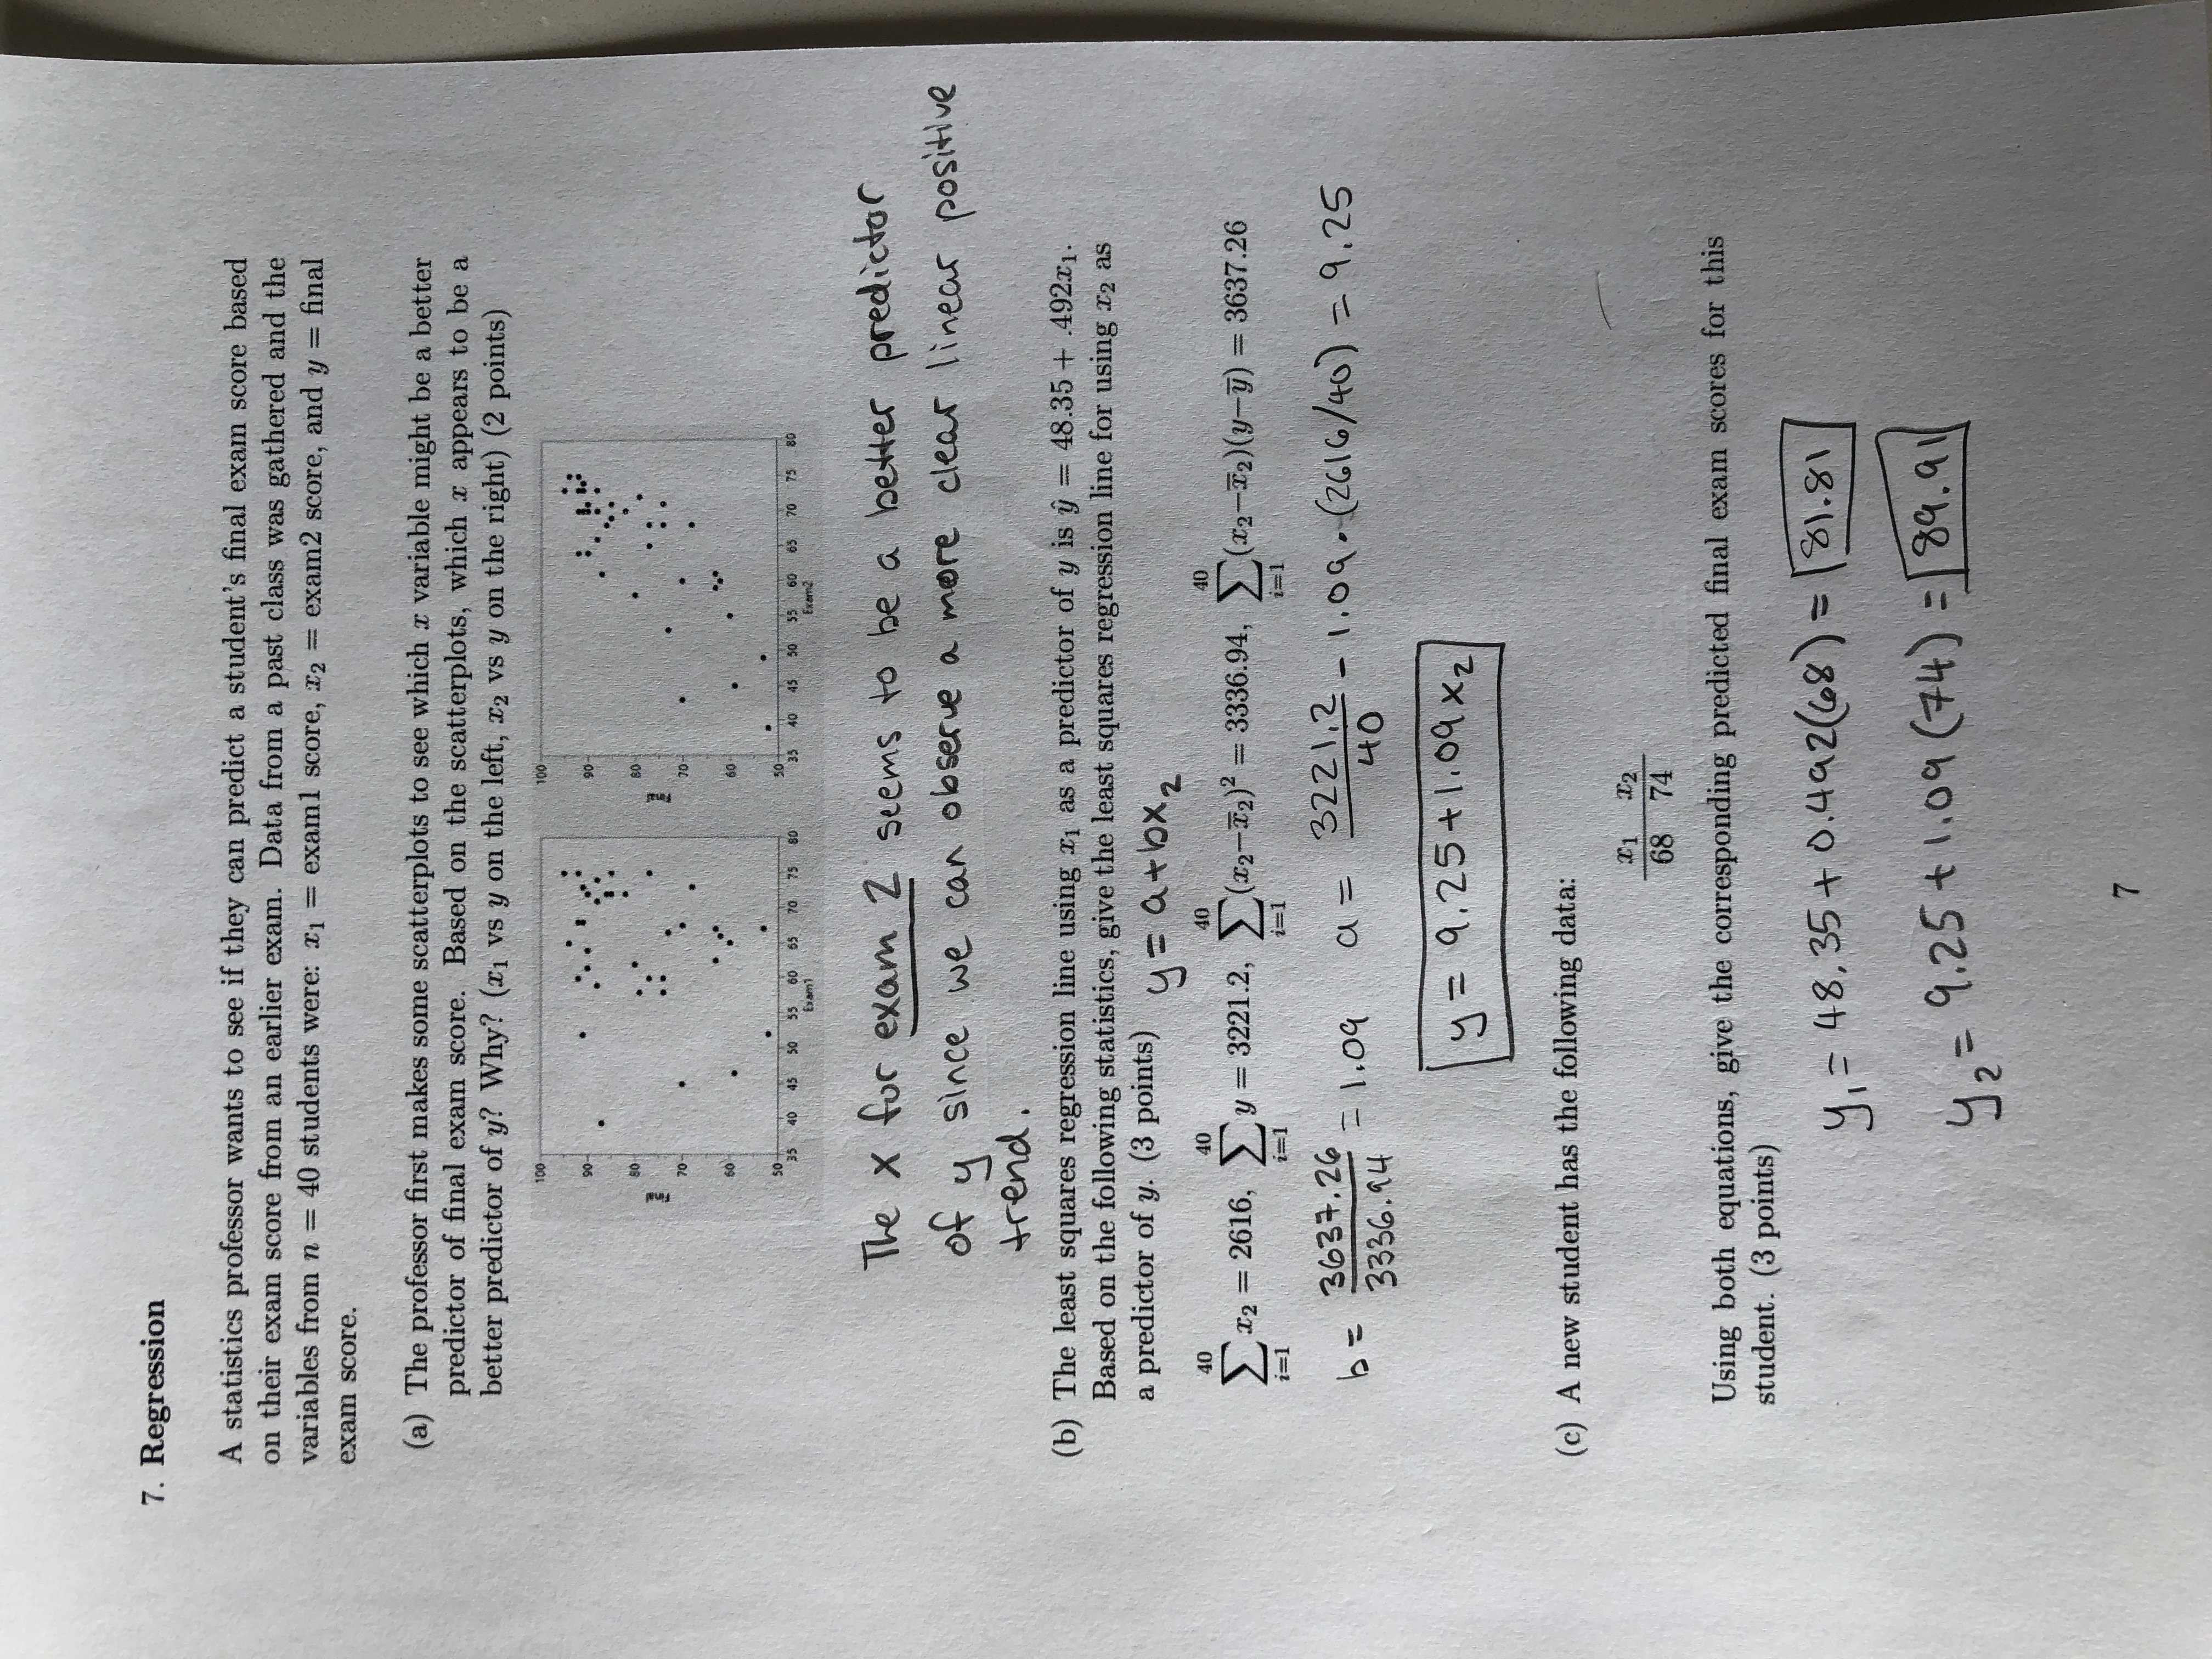 7. Regression
A statistics professor wants to see if they can predict a student's final exam score based
on their exam score from an earlier exam. Data from a past class was gathered and the
variables from n = 40 students were: x₁ = exam1 score, x₂ = exam2 score, and y = final
exam score.
(a) The professor first makes some scatterplots to see which x variable might be a better
predictor of final exam score. Based on the scatterplots, which x appears to be a
better predictor of y? Why? (x₁ vs y on the left, x₂ vs y on the right) (2 points)
100
90
80
70
60
50
Final
35 40 45 50 55 60 65 70 75 80
Exam1
100
90
80
70
60
50
Final
35 40 45 50 55 60 65 70 75 80
Exam2
The x for exam 2 seems to be a better predictor
of y since we can observe a more clear linear positive
trend.
(b) The least squares regression line using x₁ as a predictor of y is ŷ = 48.35 + .492x₁.
Based on the following statistics, give the least squares regression line for using x₂ as
a predictor of y. (3 points) y = a+bx₂
40 40 40 40
∑ x₂ = 2616, ∑ y = 3221.2, ∑(x₂−x̄₂)² = 3336.94, ∑(x₂−x̄₂)(y−ȳ) = 3637.26
i=1 i=1 i=1 i=1
b = 3637.26/3336.94 = 1.09 a = 3221.2/40 - 1.09·(2616/40) = 9.25
y = 9.25+1.09x₂
(c) A new student has the following data:
x₁ x₂
68 74
Using both equations, give the corresponding predicted final exam scores for this
student. (3 points)
y₁ = 48.35 + 0.492(68) = 81.81
y₂ = 9.25 + 1.09(74) = 89.91
7